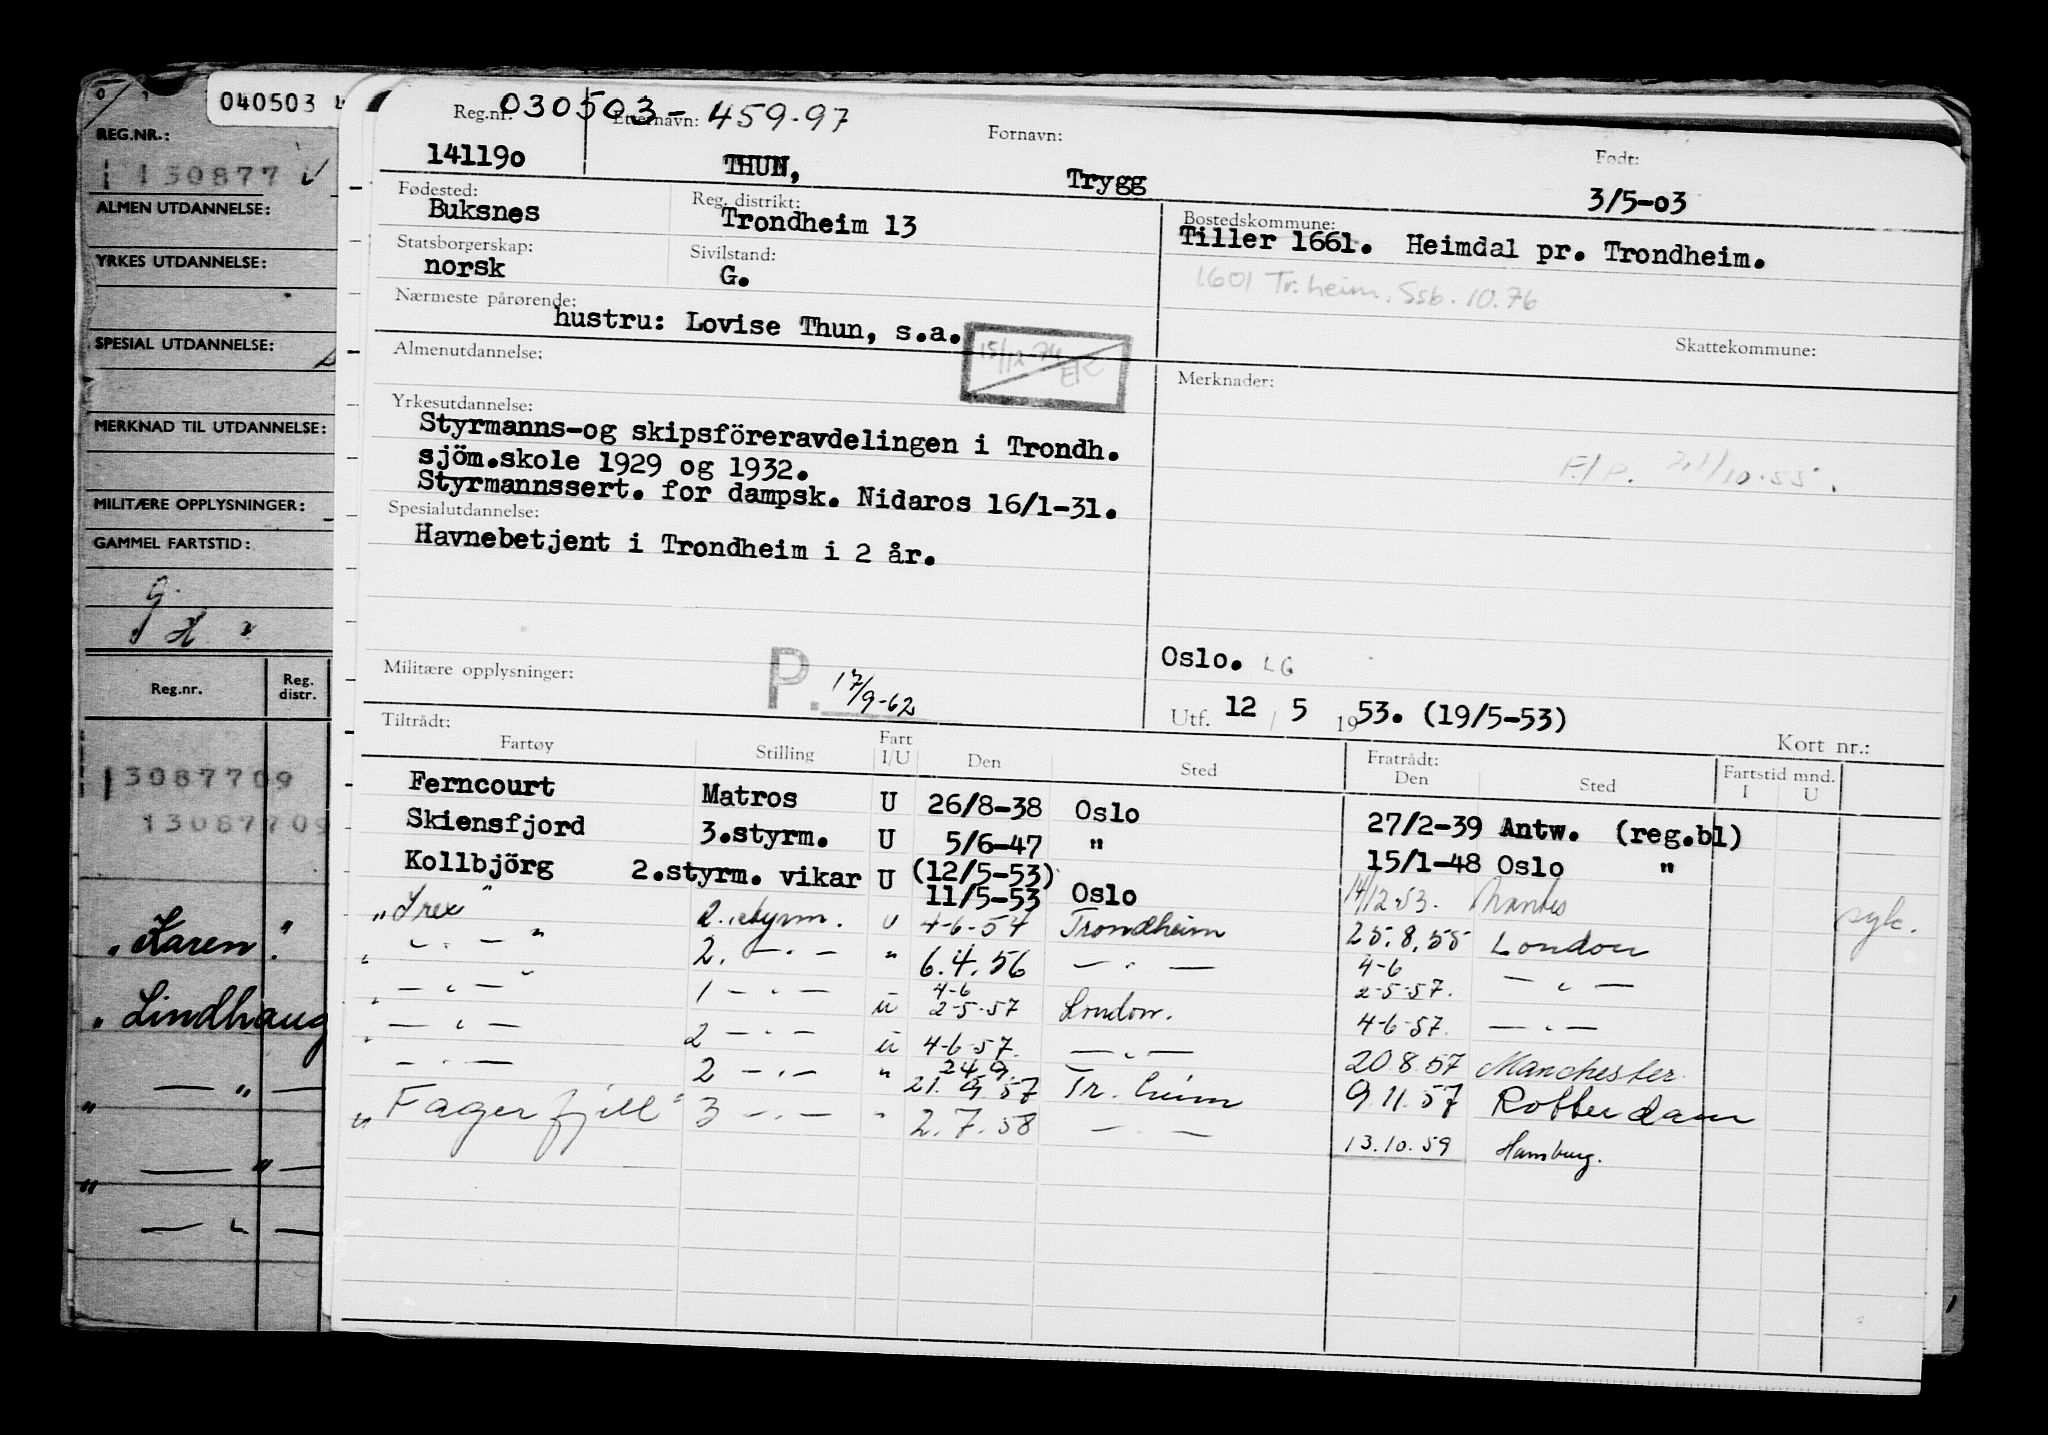 040503
REG.NR.:
130877
ALMEN UTDANNELSE:
YRKES UTDANNELSE:
SPESIAL UTDANNELSE:
MERKNAD TIL UTDANNELSE:
MILITÆRE OPPLYSNINGER:
GAMMEL FARTSTID:
Reg.nr. Reg. distr.
13087709
13087709
„ Karen "
„ Lindhaug
— " —
— " —
— " —
Reg.nr. 030503-459.97 Etternavn: Fornavn: Født:
141190 THUN, Trygg 3/5-03
Fødested: Reg. distrikt: Bostedskommune:
Buksnes Trondheim 13 Tiller 1661. Heimdal pr. Trondheim.
Statsborgerskap: Sivilstand:
norsk G. 1601 Tr.heim, Ssb. 10.76
Nærmeste pårørende:
hustru: Lovise Thun, s.a.
15/12-74
Skattekommune:
Almenutdannelse: Merknader:
Yrkesutdannelse:
Styrmanns-og skipsföreravdelingen i Trondh.
sjöm.skole 1929 og 1932.
Styrmannssert. for dampsk. Nidaros 16/1-31.
Spesialutdannelse:
Havnebetjent i Trondheim i 2 år.
Oslo. LG
Militære opplysninger: P. 17/9-62
Utf. 12 / 5 1953. (19/5-53)
Tiltrådt: Kort nr.:
Fartøy Stilling Fart I/U Den Sted Fratrådt: Den Sted Fartstid mnd. I U
Ferncourt Matros U 26/8-38 Oslo 27/2-39 Antw. (reg.bl)
Skiensfjord 3.styrm. U 5/6-47 " 15/1-48 Oslo "
Kollbjörg 2.styrm. vikar U (12/5-53)
11/5-53 Oslo 14/12.53. Nantes syk.
„Irex" 2. styrm. U 4-6-54 Trondheim 25.8.55 London
„ — " — " 2. — " — " 6.4.56 — " — 4-6
2-5-57. — " —
„ — " — " 1 — " — ü 4-6
2-5-57 London. 4-6-57. — " —
„ — " — 2 — " — ü 4-6-57. — " — 20.8.57 Manchester
— " — 2 — " — " 24.9.
21.9.57 Tr. heim 9.11.57 Rotterdam
„ Fagerfjell" 3 — " — " 2.7.58 — " — 13.10.59 Hamburg.